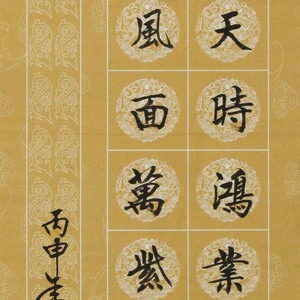 天時鴻業
風面萬紫
丙申